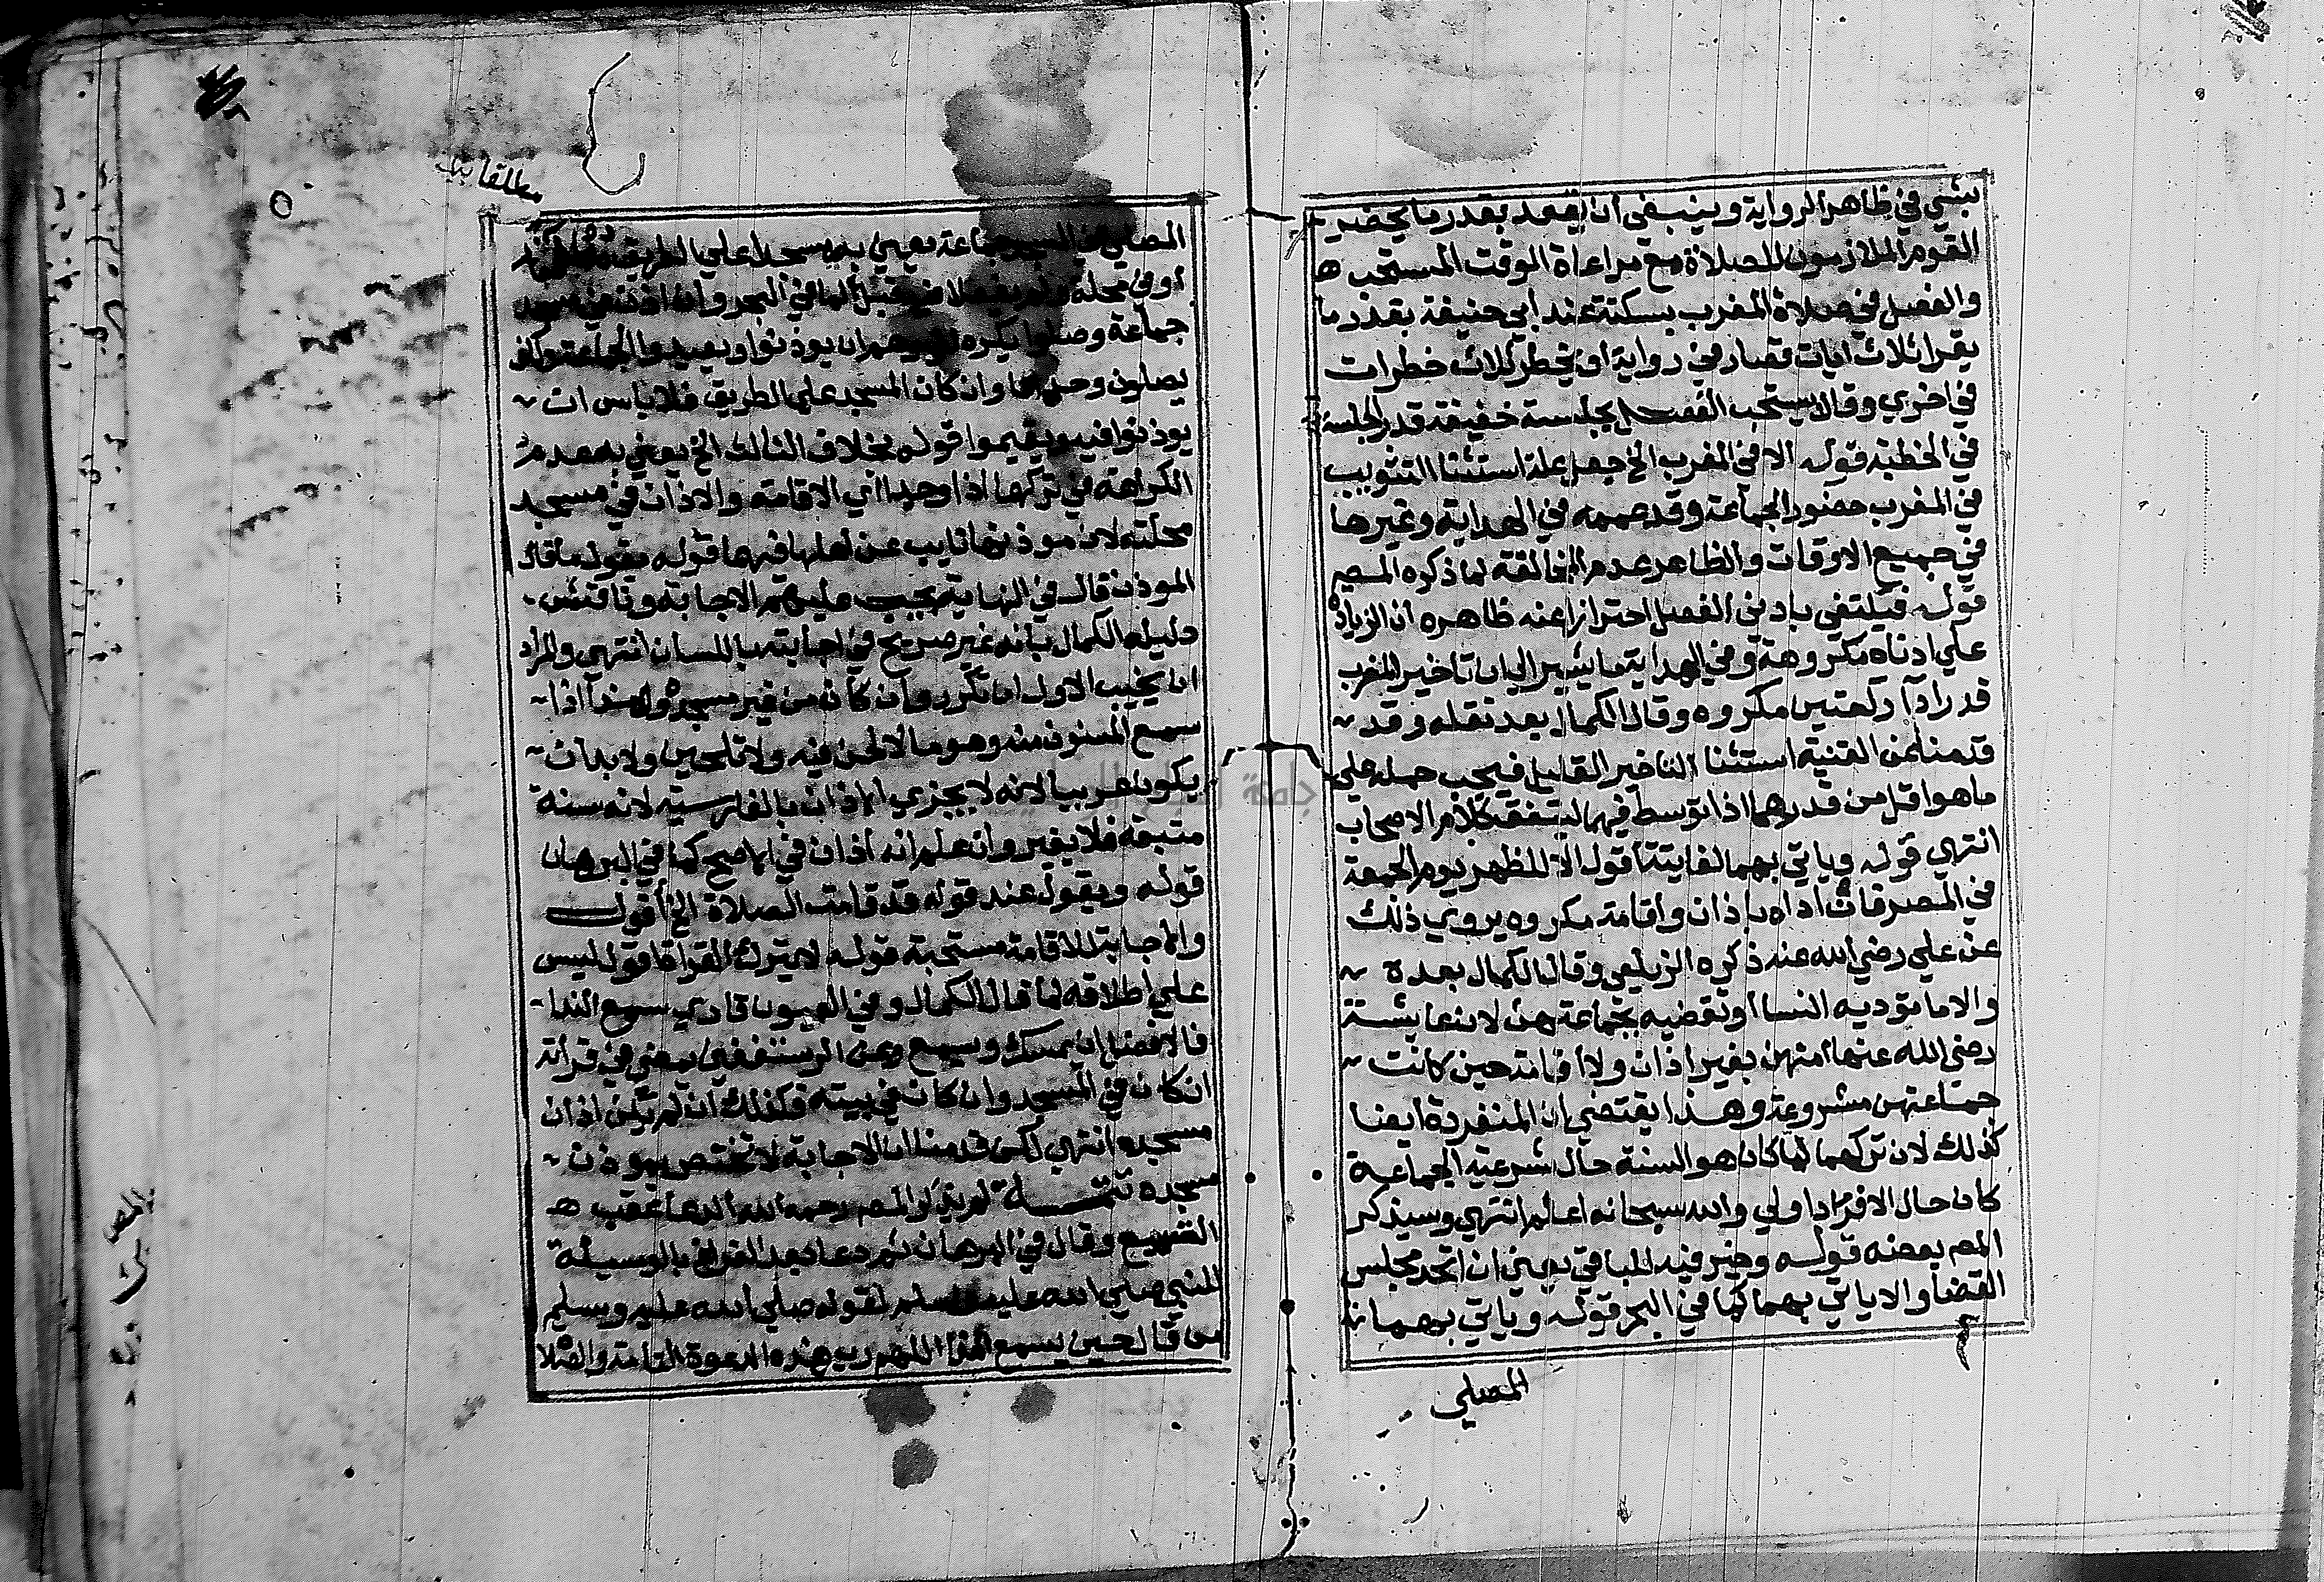 بشي في ظاهر الرواية وينبغي ان يقعد بقدر ما يحضر
القوم الملازمون للصلاة مع مراعاة الوقت المستحب ه
والفصل في صلاة المغرب بسكتة عند أبي حنيفة بقدر ما
يقرا ثلاث ايات قصار في رواية او يخطو ثلاث خطوات
في اخري وقالا يستحب الفصل بجلسة خفيفة قدر الجلسة
في الخطبة قوله الا في المغرب الخ جعل علة استثنا التثويب
في المغرب حضور الجماعة وقد عممه في الهداية وغيرها
في جميع الاوقات والظاهر عدم المخالفة لما ذكره المص
قوله فيكتفي بادني الفصل احترازا عنه ظاهره ان الزيادة
علي ادناه مكروهة وفي الهداية ما يشير الي ان تاخير المغرب
قدر ادا ركعتين مكروه وقال الكمال بعد نقله وقد
قدمنا عن القنية استثنا التاخير القليل فيجب حمله علي
ما هو اقل من قدرهما اذا توسط فيهما ليتفق كلام الاصحاب
انتهي قوله وياتي بهما لفايتة أقول الا للظهر يوم الجمعة
في المصر فان اداه باذان واقامة مكروه يروي ذلك
عن علي رضي الله عنه ذكره الزيلعي وقال الكمال بعده
والا ما تؤديه النسا او تقضيه بجماعة هن لان عايشة
رضي الله عنها امتهن بغير اذان ولا اقامة حين كانت
جماعتهن مشروعة وهذا يقتضي ان المنفردة ايضا
كذلك لان تركهما لما كان هو السنة حال شرعية الجماعة
كان حال الافراد اولي والله سبحانه اعلم انتهي وسيذكر
المص بعضه قوله وخير فيه للباقي يعني ان اتحد مجلس
القضا والا ياتي بهما كما في البحر قوله وياتي بهما نه
المصلي
مطلقا
المصلي في المسجد جماعة يعني به مسجدا علي الطريق
أو في محلة
جماعة وصلوا يكره لغيرهم ان يوذنوا ويعيدوا الجماعة ولكن
يصلون وحدانا وان كان المسجد علي الطريق فلا باس ان
يوذنوا فيه ويقيموا قوله بخلاف الثالث الخ يعني به عدم
الكراهة في تركها اذا وجدا اي الاقامة والاذان في مسجد
محلته لان موذنها نايب عن اهلها فيهما قوله يقول ما قال
الموذن قال في النهاية يجب عليهم الاجابة وناقش
دليله الكمال بانه غير صريح في اجابته باللسان انتهي والمراد
ان يجيب الاول ان تكرر وان كان من غير مسجده وله هذا اذا
سمع المسنون منه وهو ما لا لحن فيه ولا تلحين ولا بد ان
يكون عربيا لانه لا يجزي الاذان بالفارسية لانه سنة
متبعة فلا يغير وان علم انه اذان في الاصح كما في البرهان
قوله ويقول عند قوله قد قامت الصلاة الخ أقول
والاجابة للاقامة مستحبة قوله لا يترك القرا اقول ليس
علي اطلاقه لما قال الكمال وفي العيون قاري سمع الندا
فالافضل ان يمسك ويسمع وعن الرستغفني يمضي في قراته
ان كان في المسجد وان كان في بيته فكذلك ان لم يكن اذان
مسجده انتهي لكن قدمنا ان الاجابة لا تختص بموذن
مسجده تتمــة لم يذكر المص رحمه الله الدعا عقب ه
التشييع وقال في البرهان ثم دعا بعد الفراغ بالوسيلة
للنبي صلي الله عليه وسلم لقوله صلي الله عليه وسلم
من قال حين يسمع الندا اللهم رب هذه الدعوة التامة والصلا